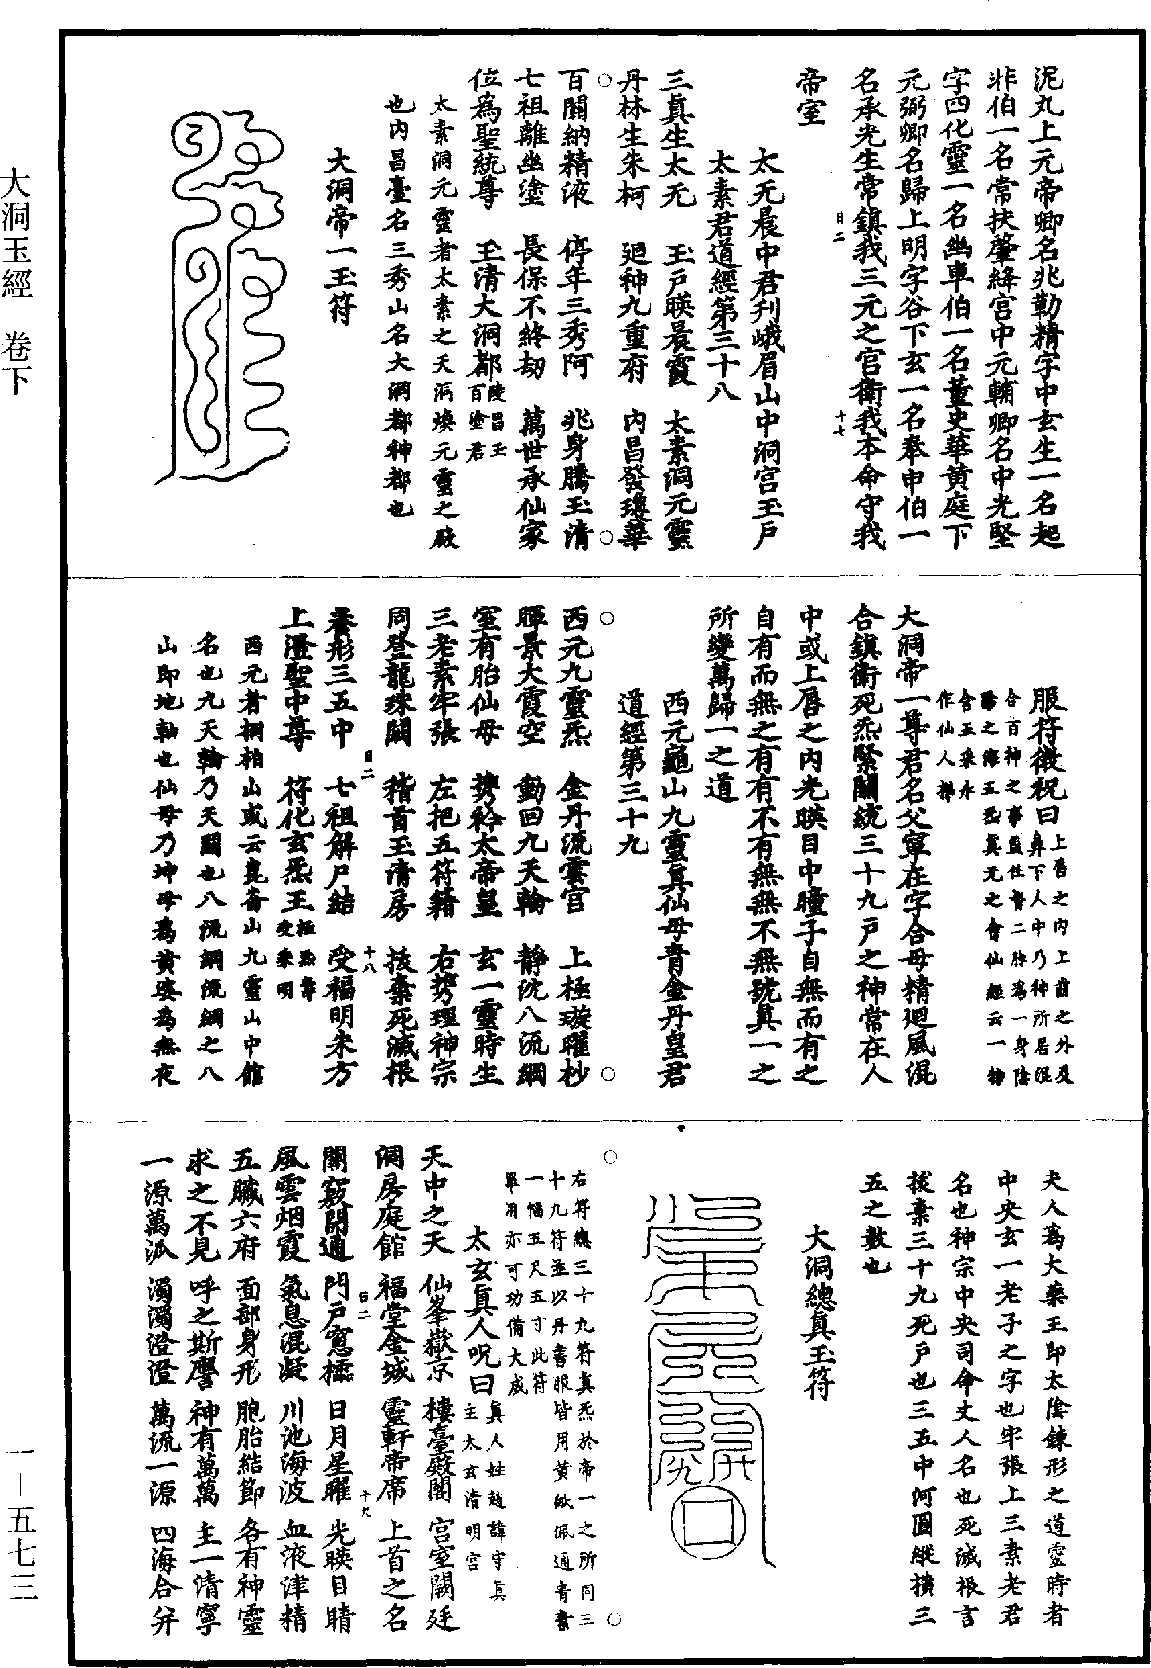 大洞玉經　卷下
一—五七三
泥丸上元帝卿名兆勒精字中玄生一名起
非伯一名常扶肇絳宮中元輔卿名中光堅
字四化靈一名幽車伯一名董史華黃庭下
元弼卿名歸上明字谷下玄一名奉申伯一
名承光生常鎮我三元之宮衛我本命守我
帝室
太无晨中君刊峨眉山中洞宮玉戶
太素君道經第三十八
三真生太无　玉戶暎晨霞　太素洞元靈
丹林生朱柯　廻神九重府　內昌發瓊華
百關納精液　停年三秀阿　兆身騰玉清
七祖離幽塗　長保不終劫　萬世承仙家
位為聖統尊　玉清大洞都陵昌玉百塗君
太素洞元靈者太素之天洞煥元靈之殿
也內昌臺名三秀山名大洞都神都也
大洞帝一玉符
服符微祝曰上唇之內上齒之外及
鼻下人中乃神所居混
合百神之事監往督二神為一身陰
陽之源五炁真元之會仙經云一物
含五采永
作仙人祿
大洞帝一尊君名父寧在字合母精廻風混
合鎮衛死炁緊關統三十九戶之神常在人
中或上唇之內光暎目中瞳子自無而有之
自有而無之有有不有無無不無號真一之
所變萬歸一之道
西元龜山九靈真仙母青金丹皇君
道經第三十九
西元九靈炁　金丹流雲官　上極璇曜杪
暉景大霞空　勳回九天輪　靜沈八流綱
室有胎仙母　携衿太帝皇　玄一靈時生
三老素牢張　左把五符籍　右携理神宗
同登龍珠闕　稽首玉清房　拔棄死滅根
養形三五中　七祖解尸結　受福明朱方
上澄聖中尊　符化玄炁王極炁尊受藥明
西元者桐栢山或云崑崙山九靈山中館
名也九天輪乃天關也八流綱流綱之八
山即地軸也仙母乃坤母為黃婆為無夜
夫人為大藥王即太陰鍊形之道靈時者
中央玄一老子之字也牢張上三素老君
名也神宗中央司命丈人名也死滅根言
拔棄三十九死戶也三五中河圖縱橫三
五之數也
大洞總真玉符
右符總三十九符真炁於帝一之所同三
十九符並以丹書服皆用黃紙佩通青素
一幅五尺五寸此符
單用亦可功備大成
太玄真人呪曰真人姓趙諱守真
主太玄清明宮
天中之天　仙峯嶽京　樓臺殿閣　宮室闕廷
洞房庭館　福堂金城　靈軒帝席　上首之名
關竅開通　門戶窓櫺　日月星曜　光暎目睛
風雲烟霞　氣息混凝　川池海波　血液津精
五臟六府　面部身形　胞胎結節　各有神靈
求之不見　呼之斯譍　神有萬萬　主一清寧
一源萬泒　濁濁澄澄　萬流一源　四海合并